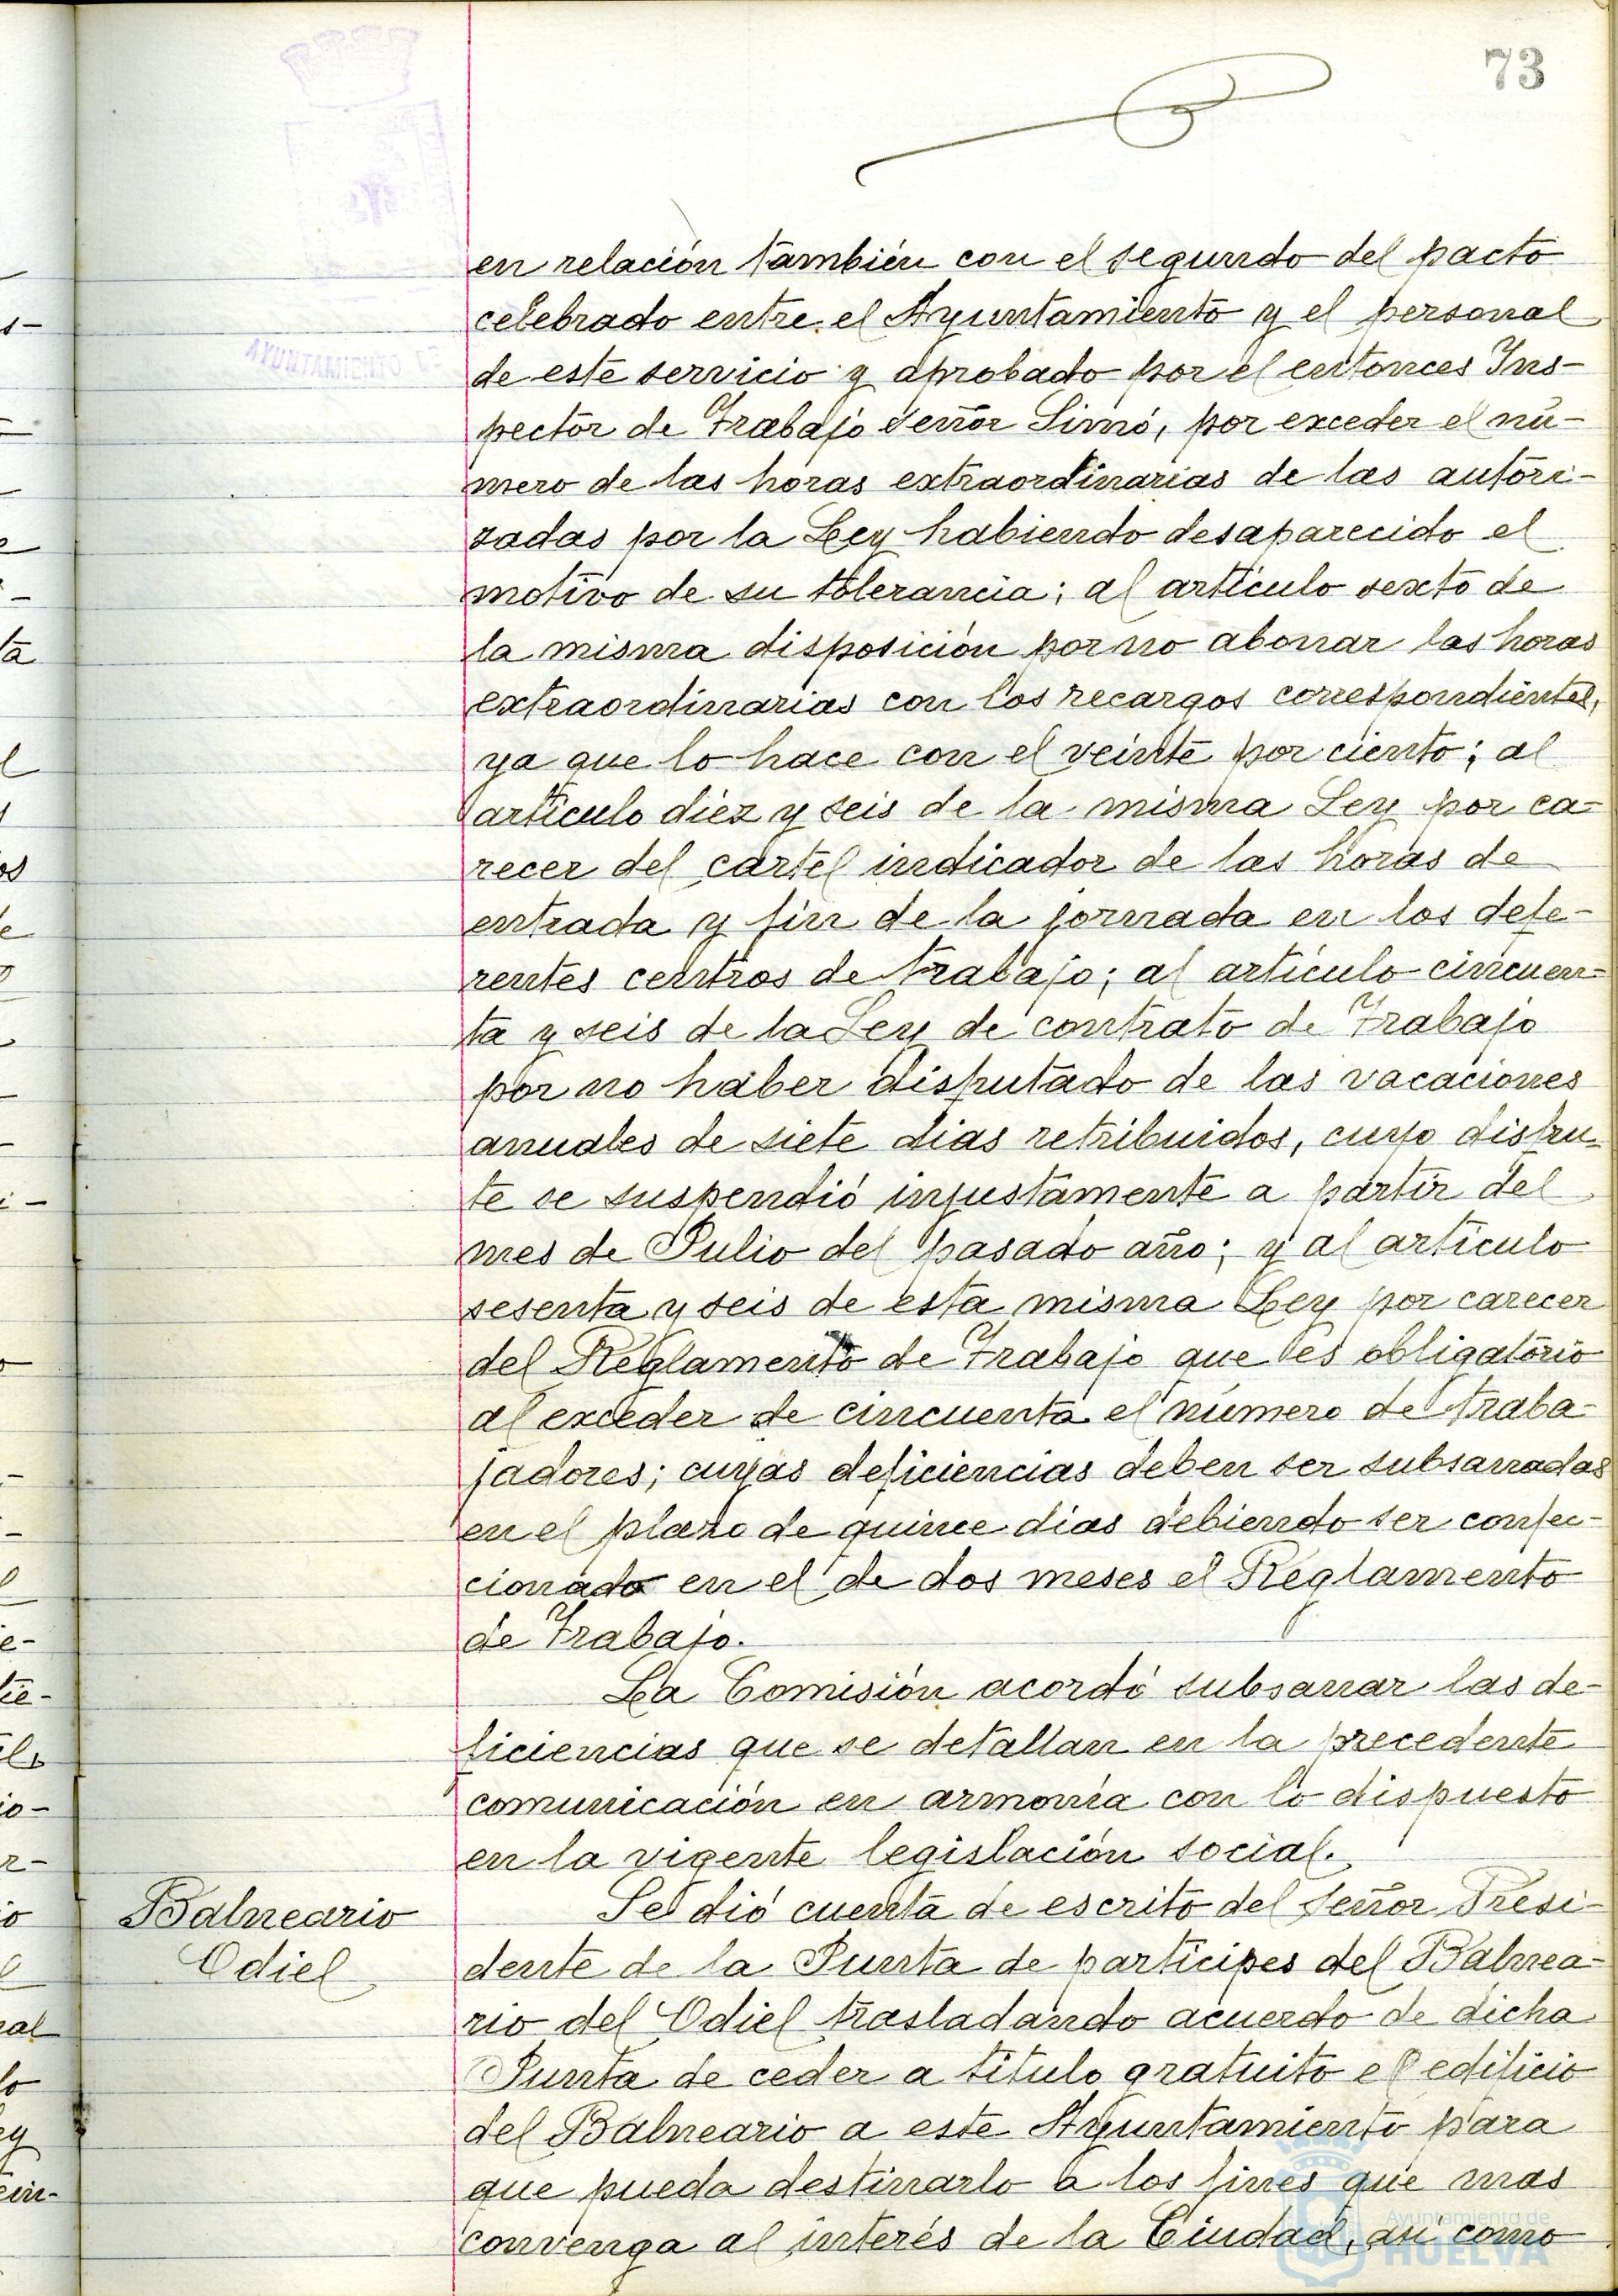 73
AYUNTAMIENTO DE
en relación también con el segundo del pacto
celebrado entre el Ayuntamiento y el personal
de este servicio y aprobado por el entonces Ins-
pector de Trabajo señor Simó, por exceder el nú-
mero de las horas extraordinarias de las autori-
zadas por la Ley habiendo desaparecido el
motivo de su tolerancia; al artículo sexto de
la misma disposición por no abonar las horas
extraordinarias con los recargos correspondientes,
ya que lo hace con el veinte por ciento; al
artículo diez y seis de la misma Ley por ca-
recer del cartel indicador de las horas de
entrada y fin de la jornada en los defe-
rentes centros de trabajo; al artículo cincuen-
ta y seis de la Ley de contrato de Trabajo
por no haber disfrutado de las vacaciones
anuales de siete dias retribuidos, cuyo disfru-
te se suspendió injustamente a partir del
mes de Julio del pasado año; y al artículo
sesenta y seis de esta misma Ley por carecer
del Reglamento de Trabajo que es obligatorio
al exceder de cincuenta el número de traba-
jadores; cuyas deficiencias deben ser subsanadas
en el plazo de quince dias debiendo ser confec-
cionado en el de dos meses el Reglamento
de Trabajo.
La Comisión acordó subsanar las de-
ficiencias que se detallan en la precedente
comunicación en armonía con lo dispuesto
en la vigente legislación social.
Balneario
Odiel
Se dió cuenta de escrito del señor Presi-
dente de la Junta de partícipes del Balnea-
rio del Odiel trasladando acuerdo de dicha
Junta de ceder a título gratuito el edificio
del Balneario a este Ayuntamiento para
que pueda destinarlo a los fines que mas
convenga al interés de la Ciudad, así como
Ayuntamiento de
HUELVA